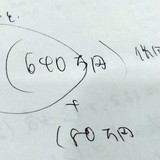 (640万円)
+
180万円